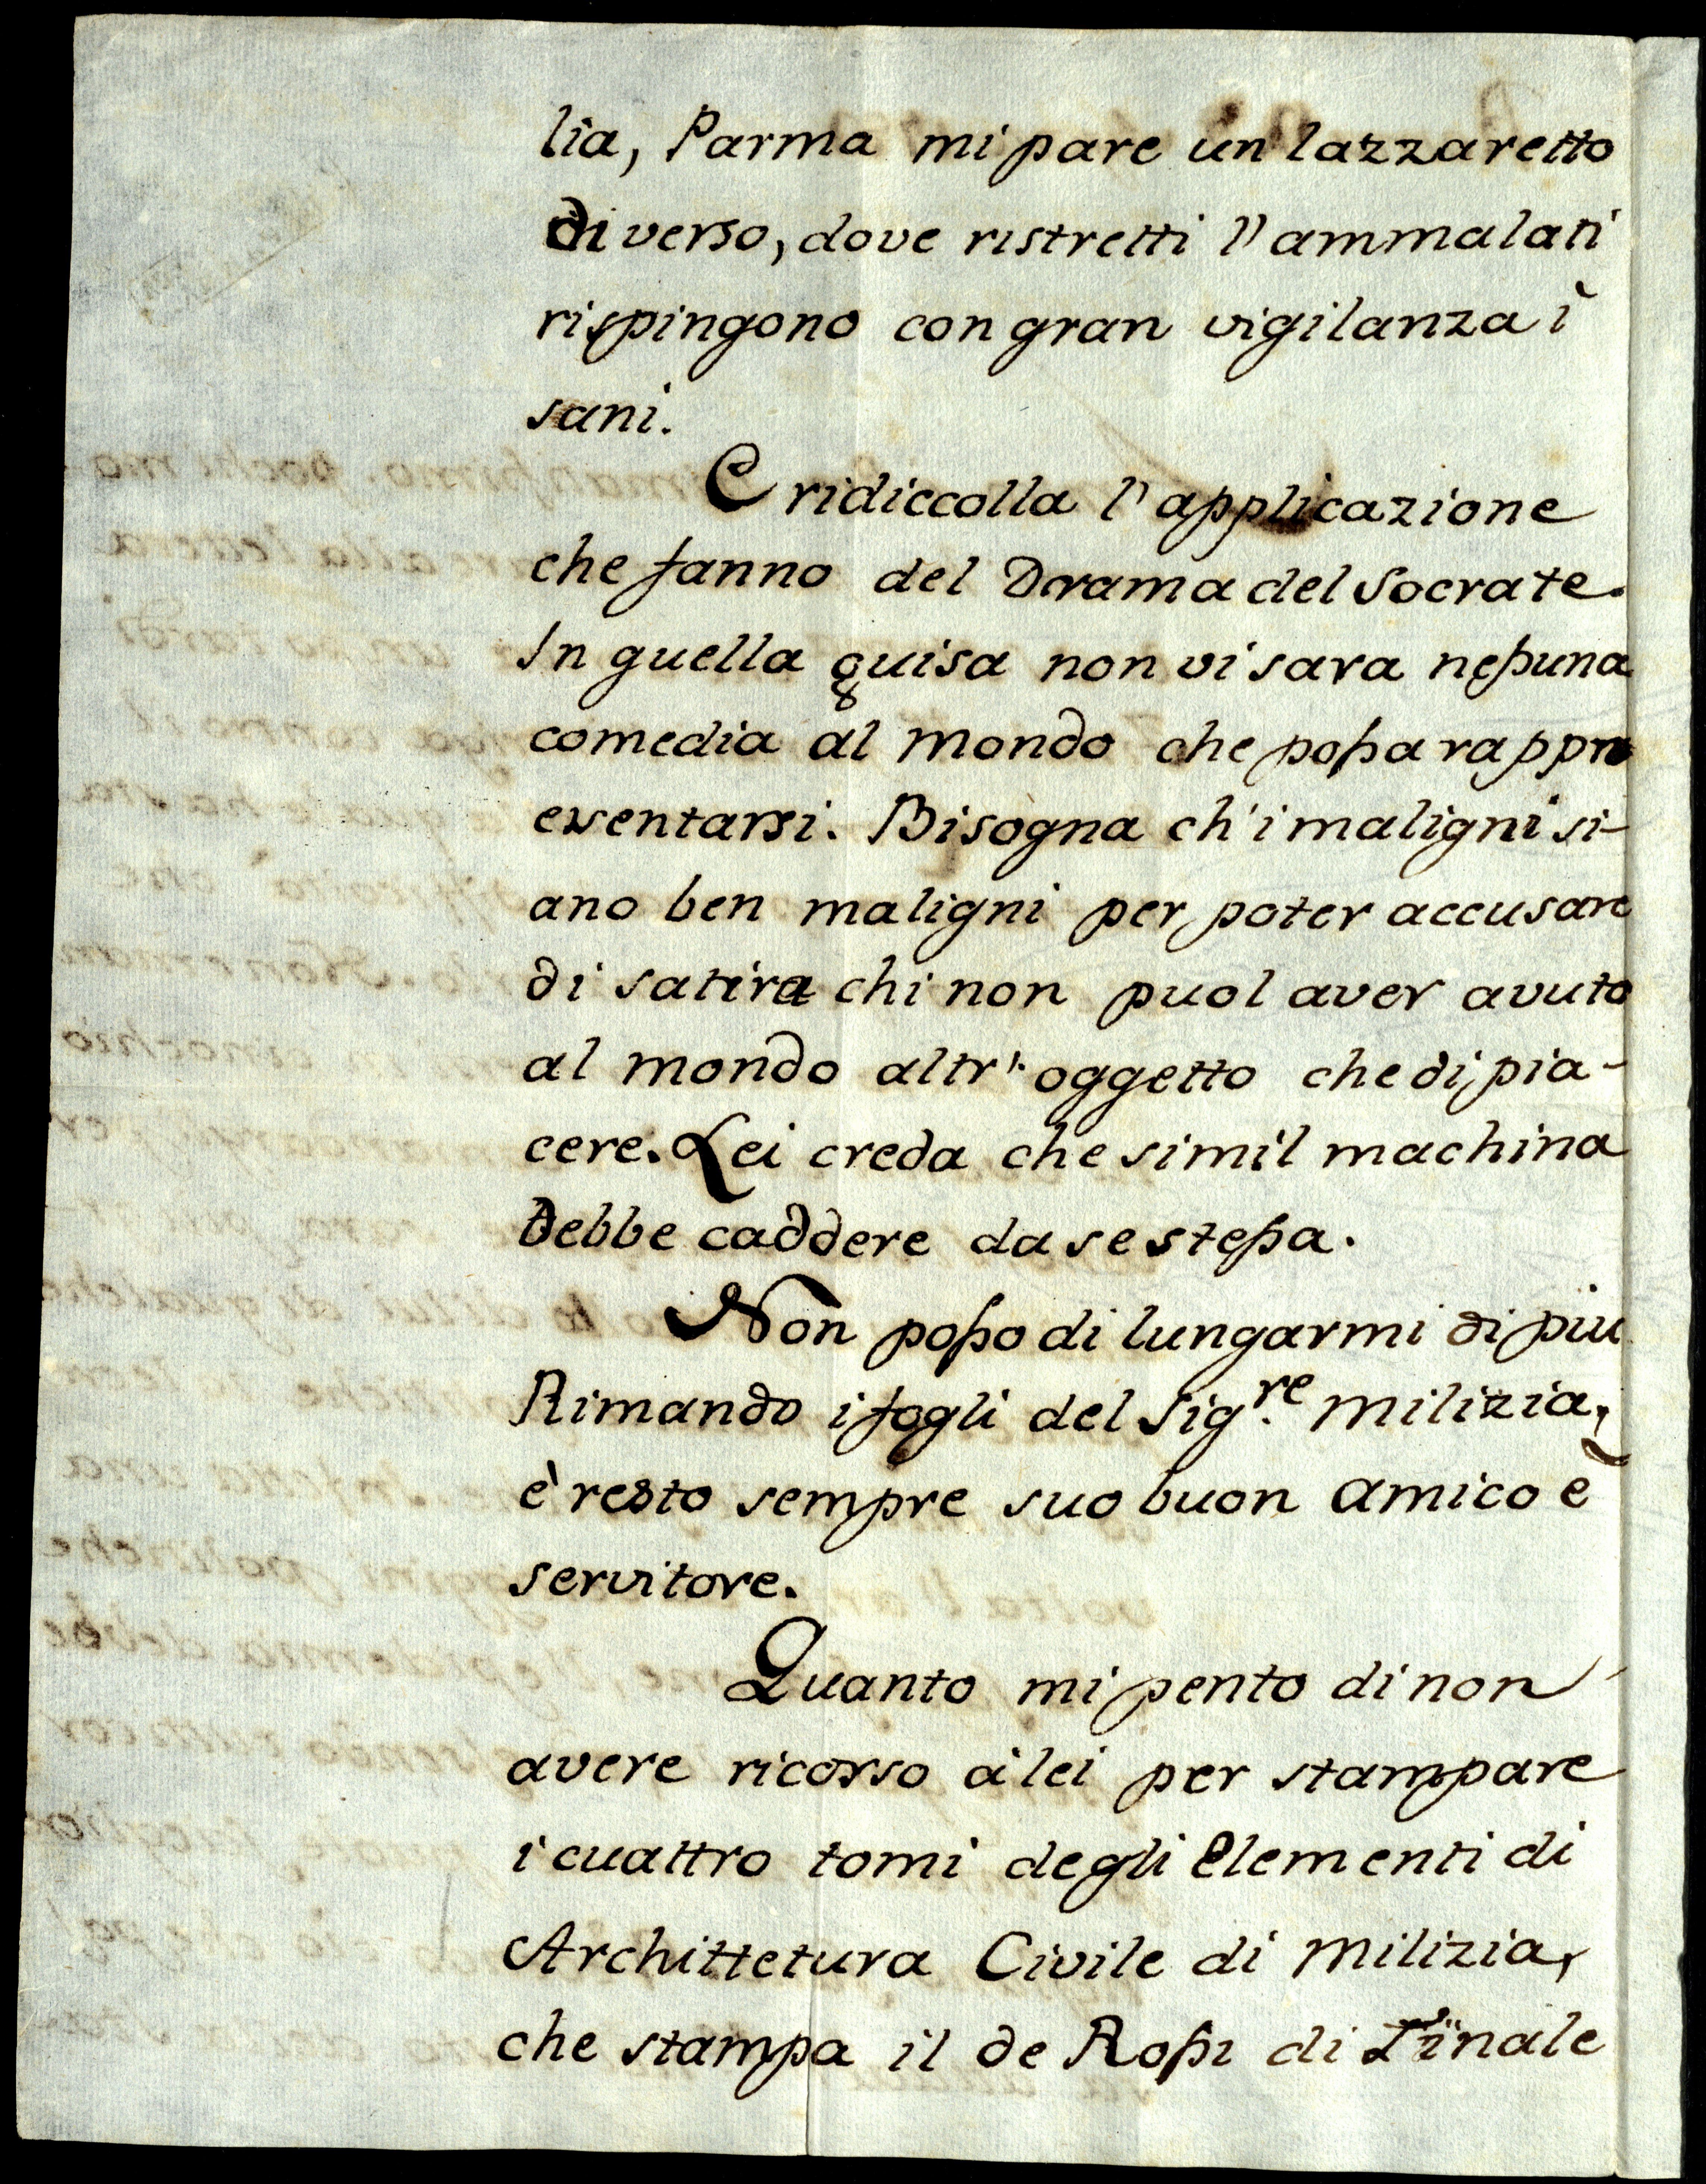 lia, Parma mi pare un lazzaretto
diverso, dove ristretti l'ammalati
rispingono con gran vigilanza i
sani.
E ridiccolla l'applicazione
che fanno del Drama del Socrate.
In quella guisa non vi sara nessuna
comedia al mondo che possa rappre
esentarsi. Bisogna ch'i maligni si-
ano ben maligni per poter accusare
di satira chi non puol aver avuto
al mondo altr' oggetto che di pia-
cere. Lei creda che simil machina
debbe caddere da se stessa.
Non posso di lungarmi di piu
Rimando i fogli del Sig.re Milizia,
è resto sempre suo buon amico è
servitore.
Quanto mi pento di non
avere ricorso à lei per stampare
i cuattro tomi degli Elementi di
Archittetura Civile di Milizia,
che stampa il de Rossi di Finale